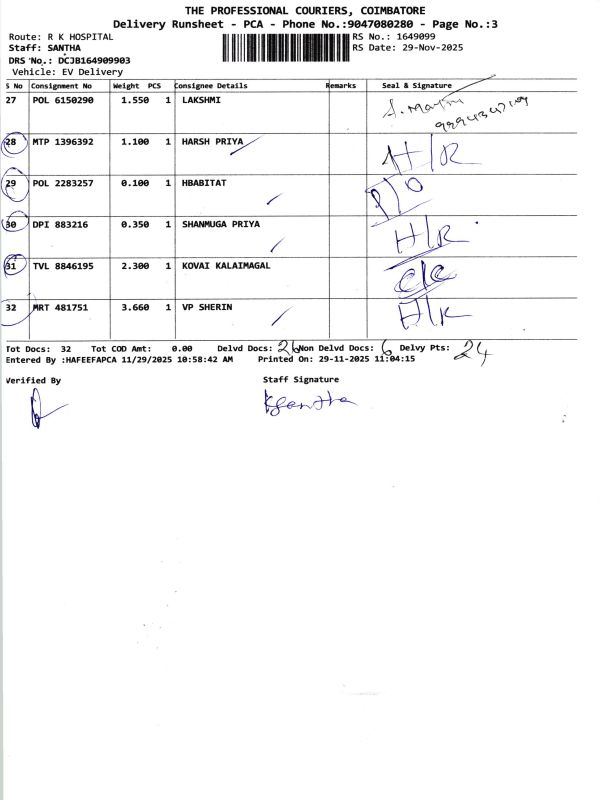 THE PROFESSIONAL COURIERS, COIMBATORE
Delivery Runsheet - PCA - Phone No.:9047080280 - Page No.:3
Route: R K HOSPITAL RS No.: 1649099
Staff: SANTHA RS Date: 29-Nov-2025
DRS No.: DCJB164909903
Vehicle: EV Delivery
S No Consignment No Weight PCS Consignee Details Remarks Seal & Signature
27 POL 6150290 1.550 1 LAKSHMI
28 MTP 1396392 1.100 1 HARSH PRIYA H/R
29 POL 2283257 0.100 1 HBABITAT P/O
30 DPI 883216 0.350 1 SHANMUGA PRIYA H/R
31 TVL 8846195 2.300 1 KOVAI KALAIMAGAL C/C
32 MRT 481751 3.660 1 VP SHERIN H/R
Tot Docs: 32 Tot COD Amt: 0.00 Delvd Docs: 26 Non Delvd Docs: 6 Delvy Pts: 24
Entered By :HAFEEFAPCA 11/29/2025 10:58:42 AM Printed On: 29-11-2025 11:04:15
Verified By Staff Signature
KSantha